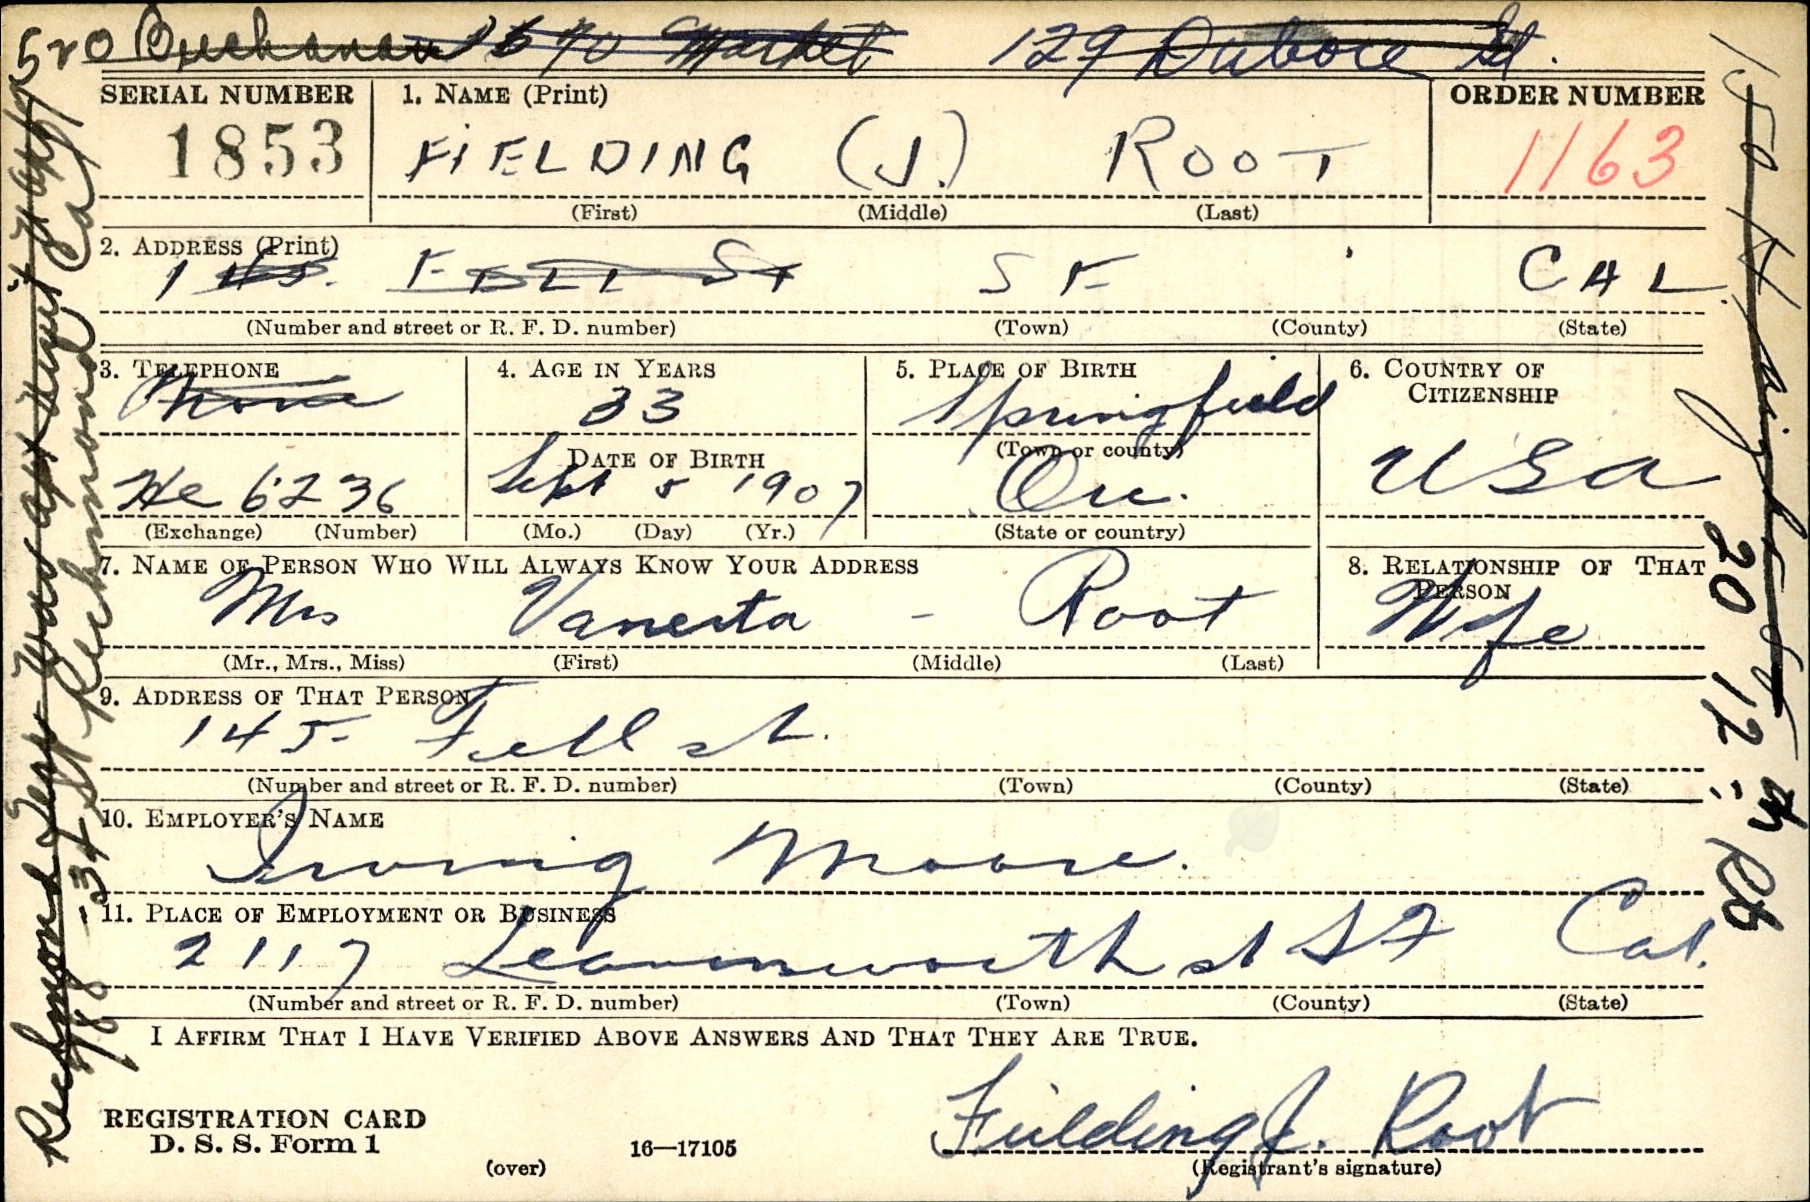 520 Buchanan 1670 Market 129 Duboce St.
SERIAL NUMBER 1. NAME (Print) ORDER NUMBER
1853 FIELDING (J.) ROOT 1163
(First) (Middle) (Last)
2. ADDRESS (Print)
145 FELL St S F CAL.
(Number and street or R. F. D. number) (Town) (County) (State)
3. TELEPHONE 4. AGE IN YEARS 5. PLACE OF BIRTH 6. COUNTRY OF CITIZENSHIP
None 33 Springfield
(Town or county)
DATE OF BIRTH
He 6236 Sept 5 1907 Ore. USA
(Exchange) (Number) (Mo.) (Day) (Yr.) (State or country)
7. NAME OF PERSON WHO WILL ALWAYS KNOW YOUR ADDRESS 8. RELATIONSHIP OF THAT PERSON
Mrs Vanesta - Root Wife
(Mr., Mrs., Miss) (First) (Middle) (Last)
9. ADDRESS OF THAT PERSON
145 Fell st.
(Number and street or R. F. D. number) (Town) (County) (State)
10. EMPLOYER'S NAME
Irving Moore.
11. PLACE OF EMPLOYMENT OR BUSINESS
2117 Leavenworth st S F Cal.
(Number and street or R. F. D. number) (Town) (County) (State)
I AFFIRM THAT I HAVE VERIFIED ABOVE ANSWERS AND THAT THEY ARE TRUE.
REGISTRATION CARD
D. S. S. Form 1 16—17105
(over)
Fielding J. Root
(Registrant's signature)
Richmond
-34 St Richmond Ca
150 Haight St
20 12th Rd